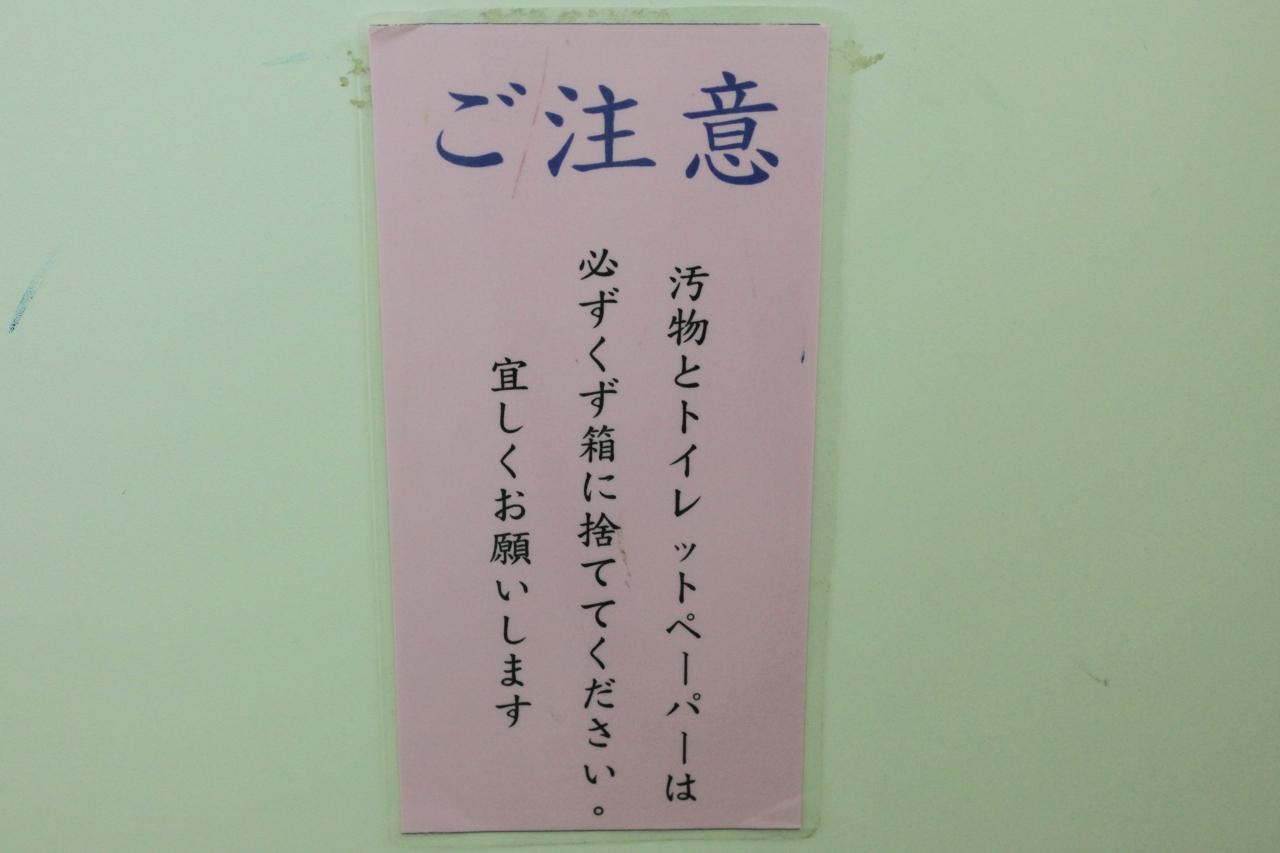 ご注意
汚物とトイレットペーパーは
必ずくず箱に捨ててください。
宜しくお願いします